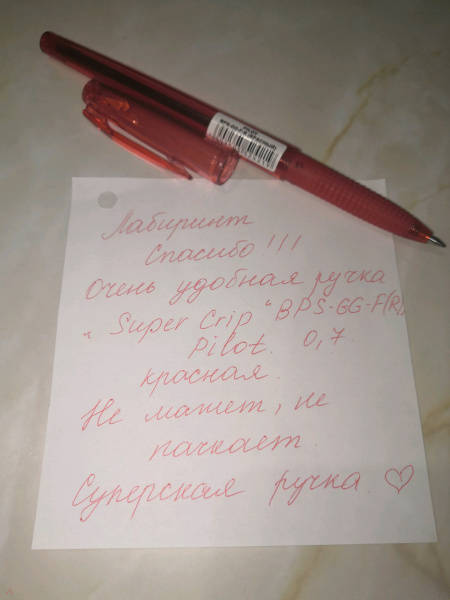 Лабиринт
Спасибо!!!
Очень удобная ручка
"Super Crip" BPS-GG-F(R)
Pilot. 0,7.
красная.
Не мажет, не
пачкает.
Суперская ручка ♡